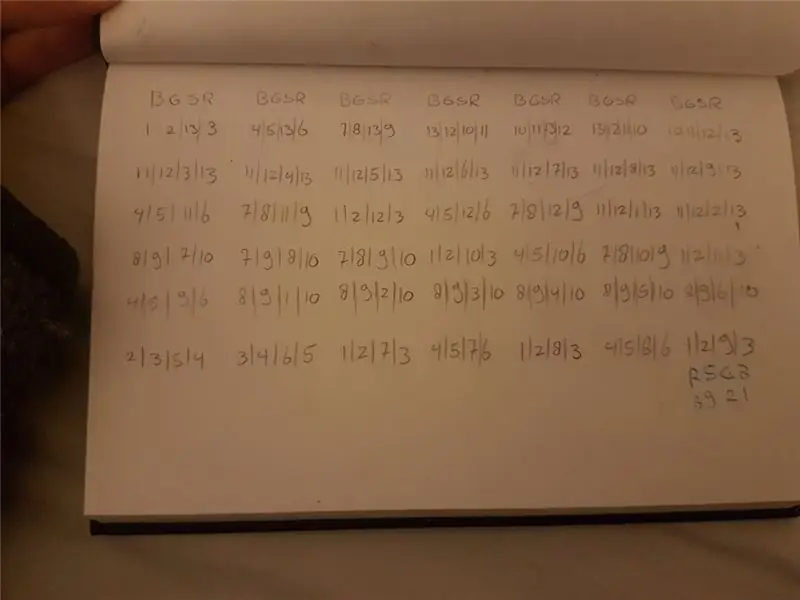 BGSR BGSR BGSR BGSR BGSR BGSR BGSR
1 2|13|3 4|5|13|6 7|8|13|9 13|12|10|11 10|11|13|12 11|12|13
11|12|3|13 11|12|4|13 11|12|5|13 11|12|6|13 11|12|7|13 11|12|8|13 11|12|9|13
4|5|11|6 7|8|11|9 1|2|12|3 4|5|12|6 7|8|12|9 11|12|1|13 11|12|2|13
8|9|7|10 7|9|8|10 7|8|9|10 1|2|10|3 4|5|10|6 7|8|10|9 1|2|11|3
4|5|9|6 8|9|1|10 8|9|2|10 8|9|3|10 8|9|4|10 8|9|5|10 8|9|6|10
2|3|5|4 3|4|6|5 1|2|7|3 4|5|7|6 1|2|8|3 4|5|8|6 1|2|9|3
RSGB
39 21